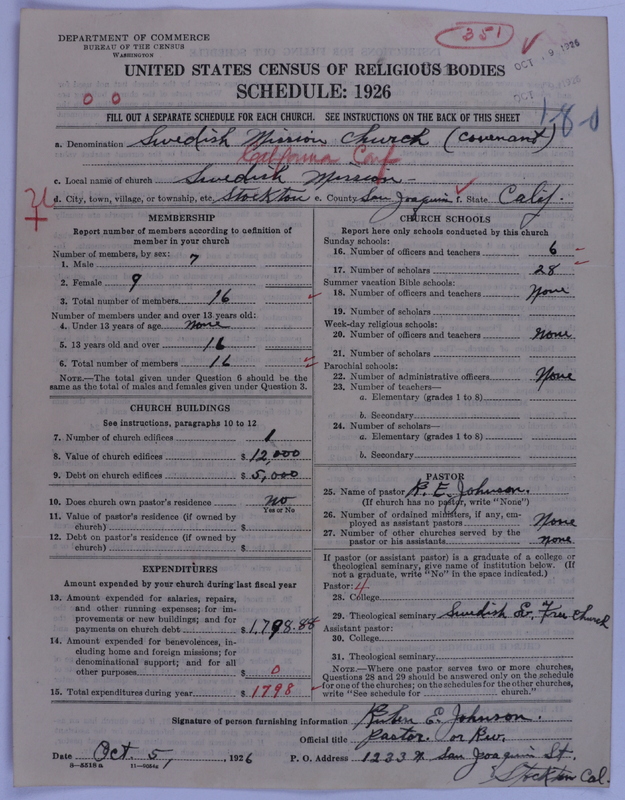 DEPARTMENT OF COMMERCE
BUREAU OF THE CENSUS
WASHINGTON
351
OCT 9 1926
UNITED STATES CENSUS OF RELIGIOUS BODIES
SCHEDULE: 1926
0 0
180
FILL OUT A SEPARATE SCHEDULE FOR EACH CHURCH. SEE INSTRUCTIONS ON THE BACK OF THIS SHEET
a. Denomination Swedish Mission Church (Covenant)
California Conf
c. Local name of church Swedish Mission
d. City, town, village, or township, etc. Stockton e. County San Joaquin f. State Calif.
MEMBERSHIP
Report number of members according to definition of
member in your church
Number of members, by sex:
1. Male 7
2. Female 9
3. Total number of members 16
Number of members under and over 13 years old:
4. Under 13 years of age none
5. 13 years old and over 16
6. Total number of members 16
NOTE.—The total given under Question 6 should be the
same as the total of males and females given under Question 3.
CHURCH BUILDINGS
See instructions, paragraphs 10 to 12
7. Number of church edifices 1
8. Value of church edifices $ 12,000
9. Debt on church edifices $ 5,000
10. Does church own pastor's residence No
Yes or No
11. Value of pastor's residence (if owned by
church) $
12. Debt on pastor's residence (if owned by
church) $
EXPENDITURES
Amount expended by your church during last fiscal year
13. Amount expended for salaries, repairs,
and other running expenses; for im-
provements or new buildings; and for
payments on church debt $ 1,798.88
14. Amount expended for benevolences, in-
cluding home and foreign missions; for
denominational support; and for all
other purposes $ 0
15. Total expenditures during year $ 1798
CHURCH SCHOOLS
Report here only schools conducted by this church
Sunday schools:
16. Number of officers and teachers 6
17. Number of scholars 28
Summer vacation Bible schools:
18. Number of officers and teachers None
19. Number of scholars
Week-day religious schools:
20. Number of officers and teachers None
21. Number of scholars
Parochial schools:
22. Number of administrative officers None
23. Number of teachers—
a. Elementary (grades 1 to 8)
b. Secondary
24. Number of scholars—
a. Elementary (grades 1 to 8)
b. Secondary
PASTOR
25. Name of pastor R. E. Johnson.
(If church has no pastor, write "None")
26. Number of ordained ministers, if any, em-
ployed as assistant pastors None
27. Number of other churches served by the
pastor or his assistants none
If pastor (or assistant pastor) is a graduate of a college or
theological seminary, give name of institution below. (If
not a graduate, write "No" in the space indicated.)
Pastor: 4
28. College
29. Theological seminary Swedish Ev. Free Church
Assistant pastor:
30. College
31. Theological seminary
NOTE.—Where one pastor serves two or more churches,
Questions 28 and 29 should be answered only on the schedule
for one of the churches; on the schedules for the other churches,
write "See schedule for church."
Signature of person furnishing information Ruben E. Johnson.
Official title Pastor. or Rev.
Date Oct. 5, 1926 P. O. Address 1233 N San Joaquin St.
8-5518a 11-9054a Stockton Cal.